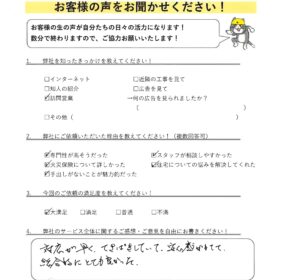 お客様の声をお聞かせください！
お客様の生の声が自分たちの日々の活力になります！
数分で終わりますので、ご協力お願いいたします！
1. 弊社を知ったきっかけを教えてください！
□インターネット □近隣の工事を見て
□知人の紹介 □広告を見て
☑訪問営業 →何の広告を見られましたか？
( )
□その他( )
2. 弊社にご依頼いただいた理由を教えてください！（複数回答可）
☑専門性が高そうだった ☑スタッフが相談しやすかった
☑火災保険について詳しかった ☑住宅についての悩みを解決してくれた
☑手出しがないことが魅力的だった
3. 今回のご依頼の満足度を教えてください！
☑大満足 □満足 □普通 □不満
4. 弊社のサービス全体に関するご感想・ご意見を自由にお書きください！
対応が早く、てきぱきしていて、
総合的にとても良かった。